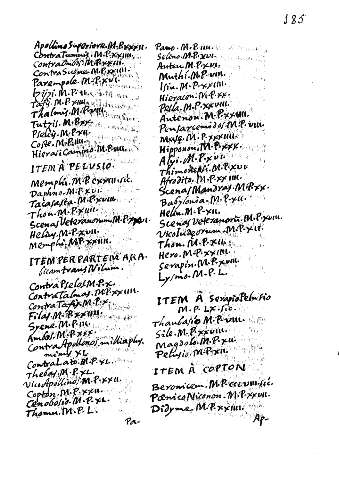 185
Apollino Superiore. M.P. XXXII.
Contra Tumnis. M.P. XXIIII.
Contra Suene M.P. XIII.
Parempole. M.P. XVI.
Tzizi. M.P. II.
Tafis. M.P. XIIII.
Thalmis. M.P. VIII.
Tutzis. M.P. XX.
Pselcis. M.P. XII.
Corte. M.P. IIII.
Hierasicamino. M.P. IIII.
ITEM À PELUSIO.
Memphi. M.P. CXXII. sic.
Dafno. M.P. XVI.
Tacasarta. M.P. XVIII.
Thou. M.P. XXIIII.
Scenas Veteranorum M.P. XXVI.
Heliu. M.P. XVIII.
Memphi. M.P. XXIIII.
ITEM PER PARTEM ARA
bicam trans Nilum.
Contra Pselcis M.P. X.
Contra Talmis. M.P. XXIIII.
Contra Tafis M.P. X.
Filas. M.P. XXIIII.
Syene. M.P. III.
Ambos. M.P. XXX.
Contra Apollonos.
minus XL
Contra Lato. M.P. XL.
Thebas. M.P. XL.
Vicus Apollinos. M.P. XXII.
Copton. M.P. XXII.
Cenobosio. M.P. XL.
Thomu. M.P. L.
Pa-
Pano. M.P. IIII.
Selino. M.P. XVI.
Anteu. M.P. XVI.
Muthi. M.P. VIII.
Isiu. M.P. XXIIII.
Hieracon. M.P. XX.
Pesla. M.P. XXVIII.
Antenon. M.P. XXIIII.
Pensarcemidos. M.P. VIII.
Muse. M.P. XXXIIII.
Hipponon. M.P. XXX.
Alyi. M.P. XVI.
Thimonepsi. M.P. XVI.
Afrodito. M.P. XXIIII.
Scenas Mandras M.P. XX.
Babylonia. M.P. XII.
Heliu. M.P. XII.
Scenas Veteranoru. M.P. XVIII.
Vico Judeorum. M.P. XII.
Thou. M.P. XII.
Hero. M.P. XXIIII.
Serapiu. M.P. XVIII.
Clysmo. M.P. L.
ITEM À Serapio Pelusio
M.P. LX. sic.
Thaubasio M.P. VIII.
Sile. M.P. XXVIII.
Magdolo. M.P. XII.
Pelusio. M.P. XII.
ITEM À COPTON
Beronicem. M.P. CCLVIII. sic.
Pœnico Niconon. M.P. XXVII.
Didyme M.P. XXIIII.
Ap-